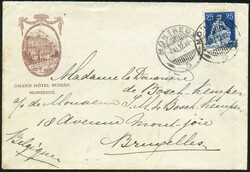 GRAND HÔTEL SUISSE
MONTREUX
MONTREUX
25
25
Madame la Douairière
de Bosch-Kemper
a/s de Monsieur J. M. de Bosch-Kemper
18 Avenue Mont-joie
Bruxelles
Belgique